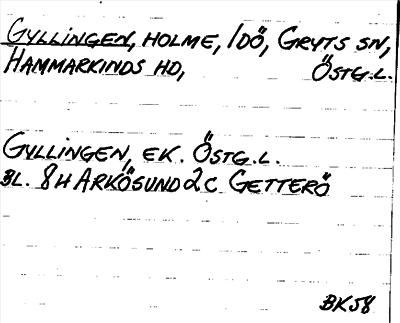 GYLLINGEN, HOLME, IDÖ, GRYTS SN,
HAMMARKINDS HD, ÖSTG.L.
GYLLINGEN, EK. ÖSTG.L.
BL. 8H ARKÖSUND 2C GETTERÖ
BK58